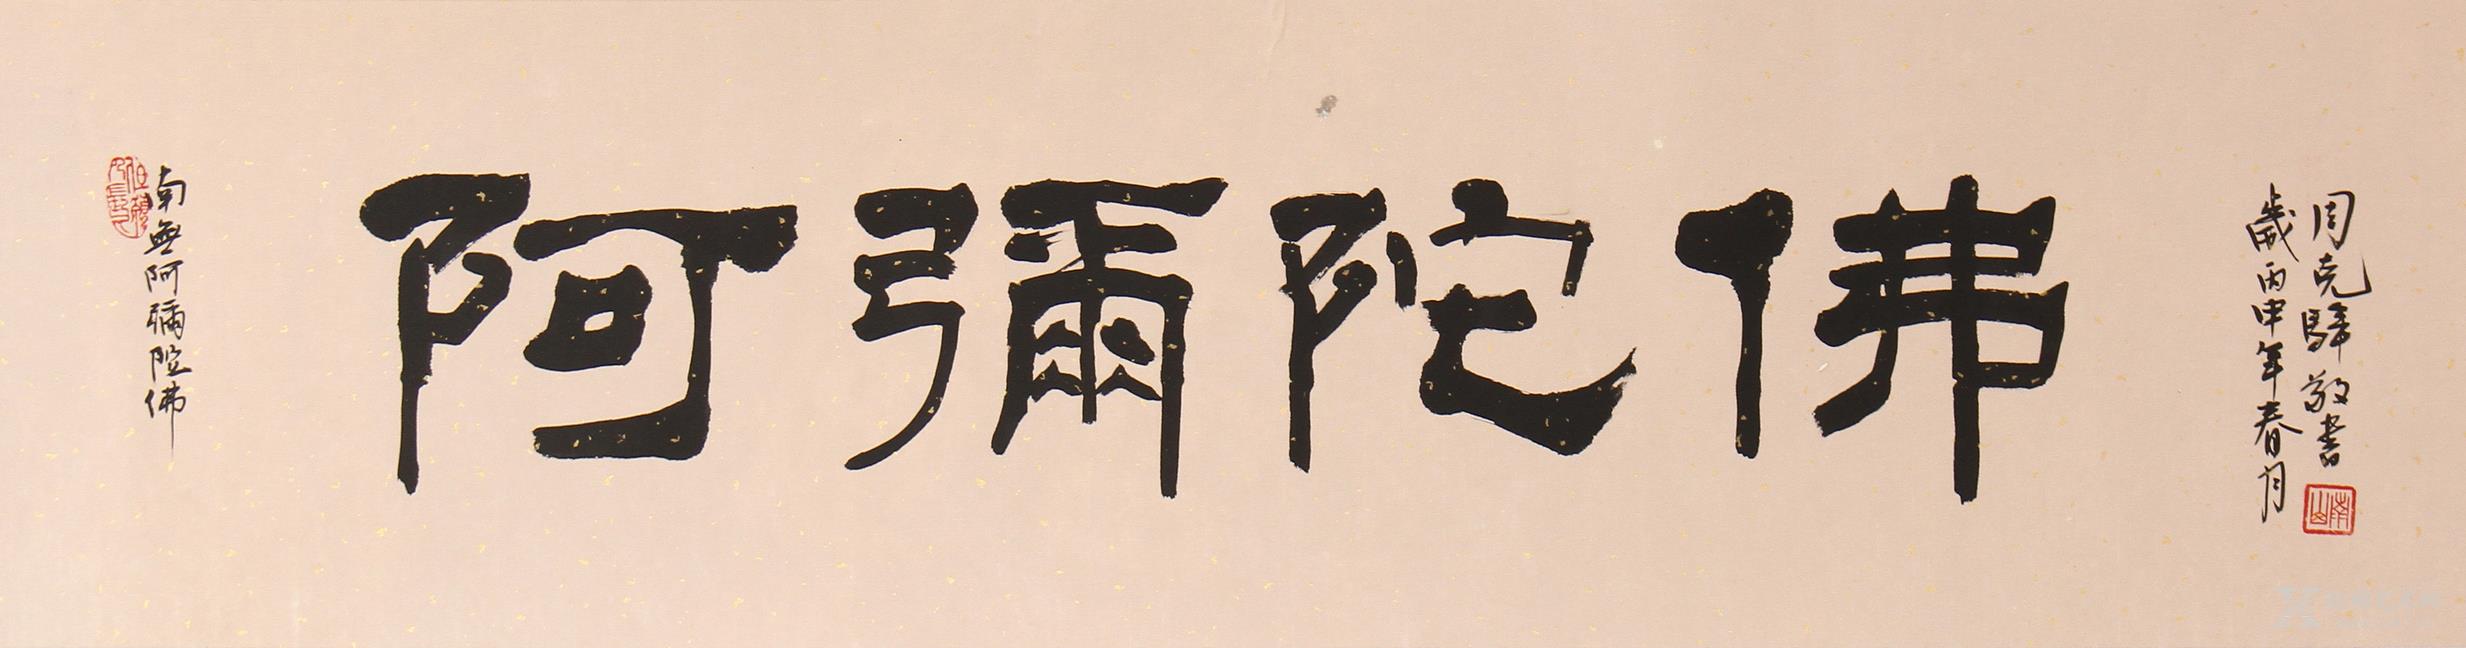 南無阿彌陀佛
阿彌陀佛
歲丙申年春月
周克敬書
南山